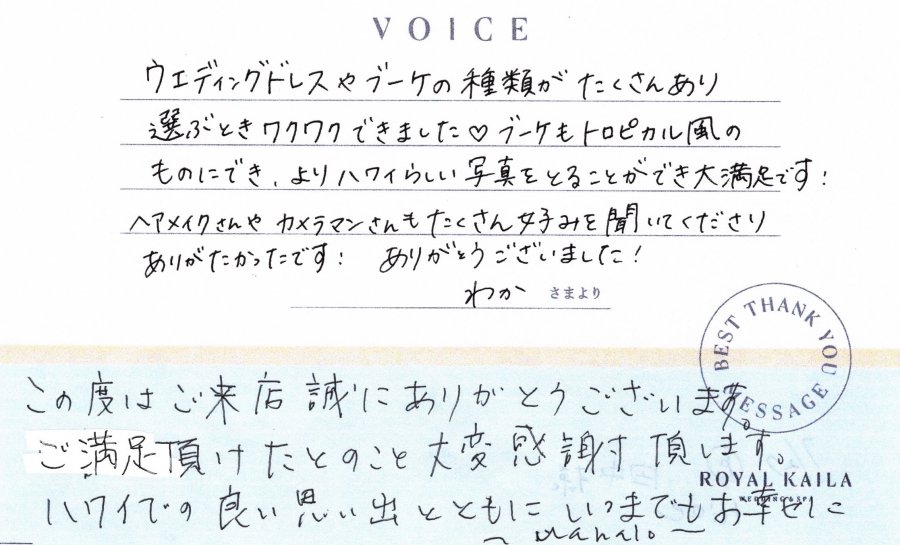 VOICE
ウエディングドレスやブーケの種類がたくさんあり
選ぶときワクワクできました♡ブーケもトロピカル風の
ものにでき、よりハワイらしい写真をとることができ大満足です!
ヘアメイクさんやカメラマンさんもたくさん好みを聞いてくださり
ありがたかったです! ありがとうございました!
わか さまより
BEST THANK YOU MESSAGE
この度はご来店誠にありがとうございます。
ご満足頂けたとのこと大変感謝頂します。
ROYAL KAILA
WEDDING & SPA
ハワイでの良い思い出とともにいつまでもお幸せに
~ Mahalo ~